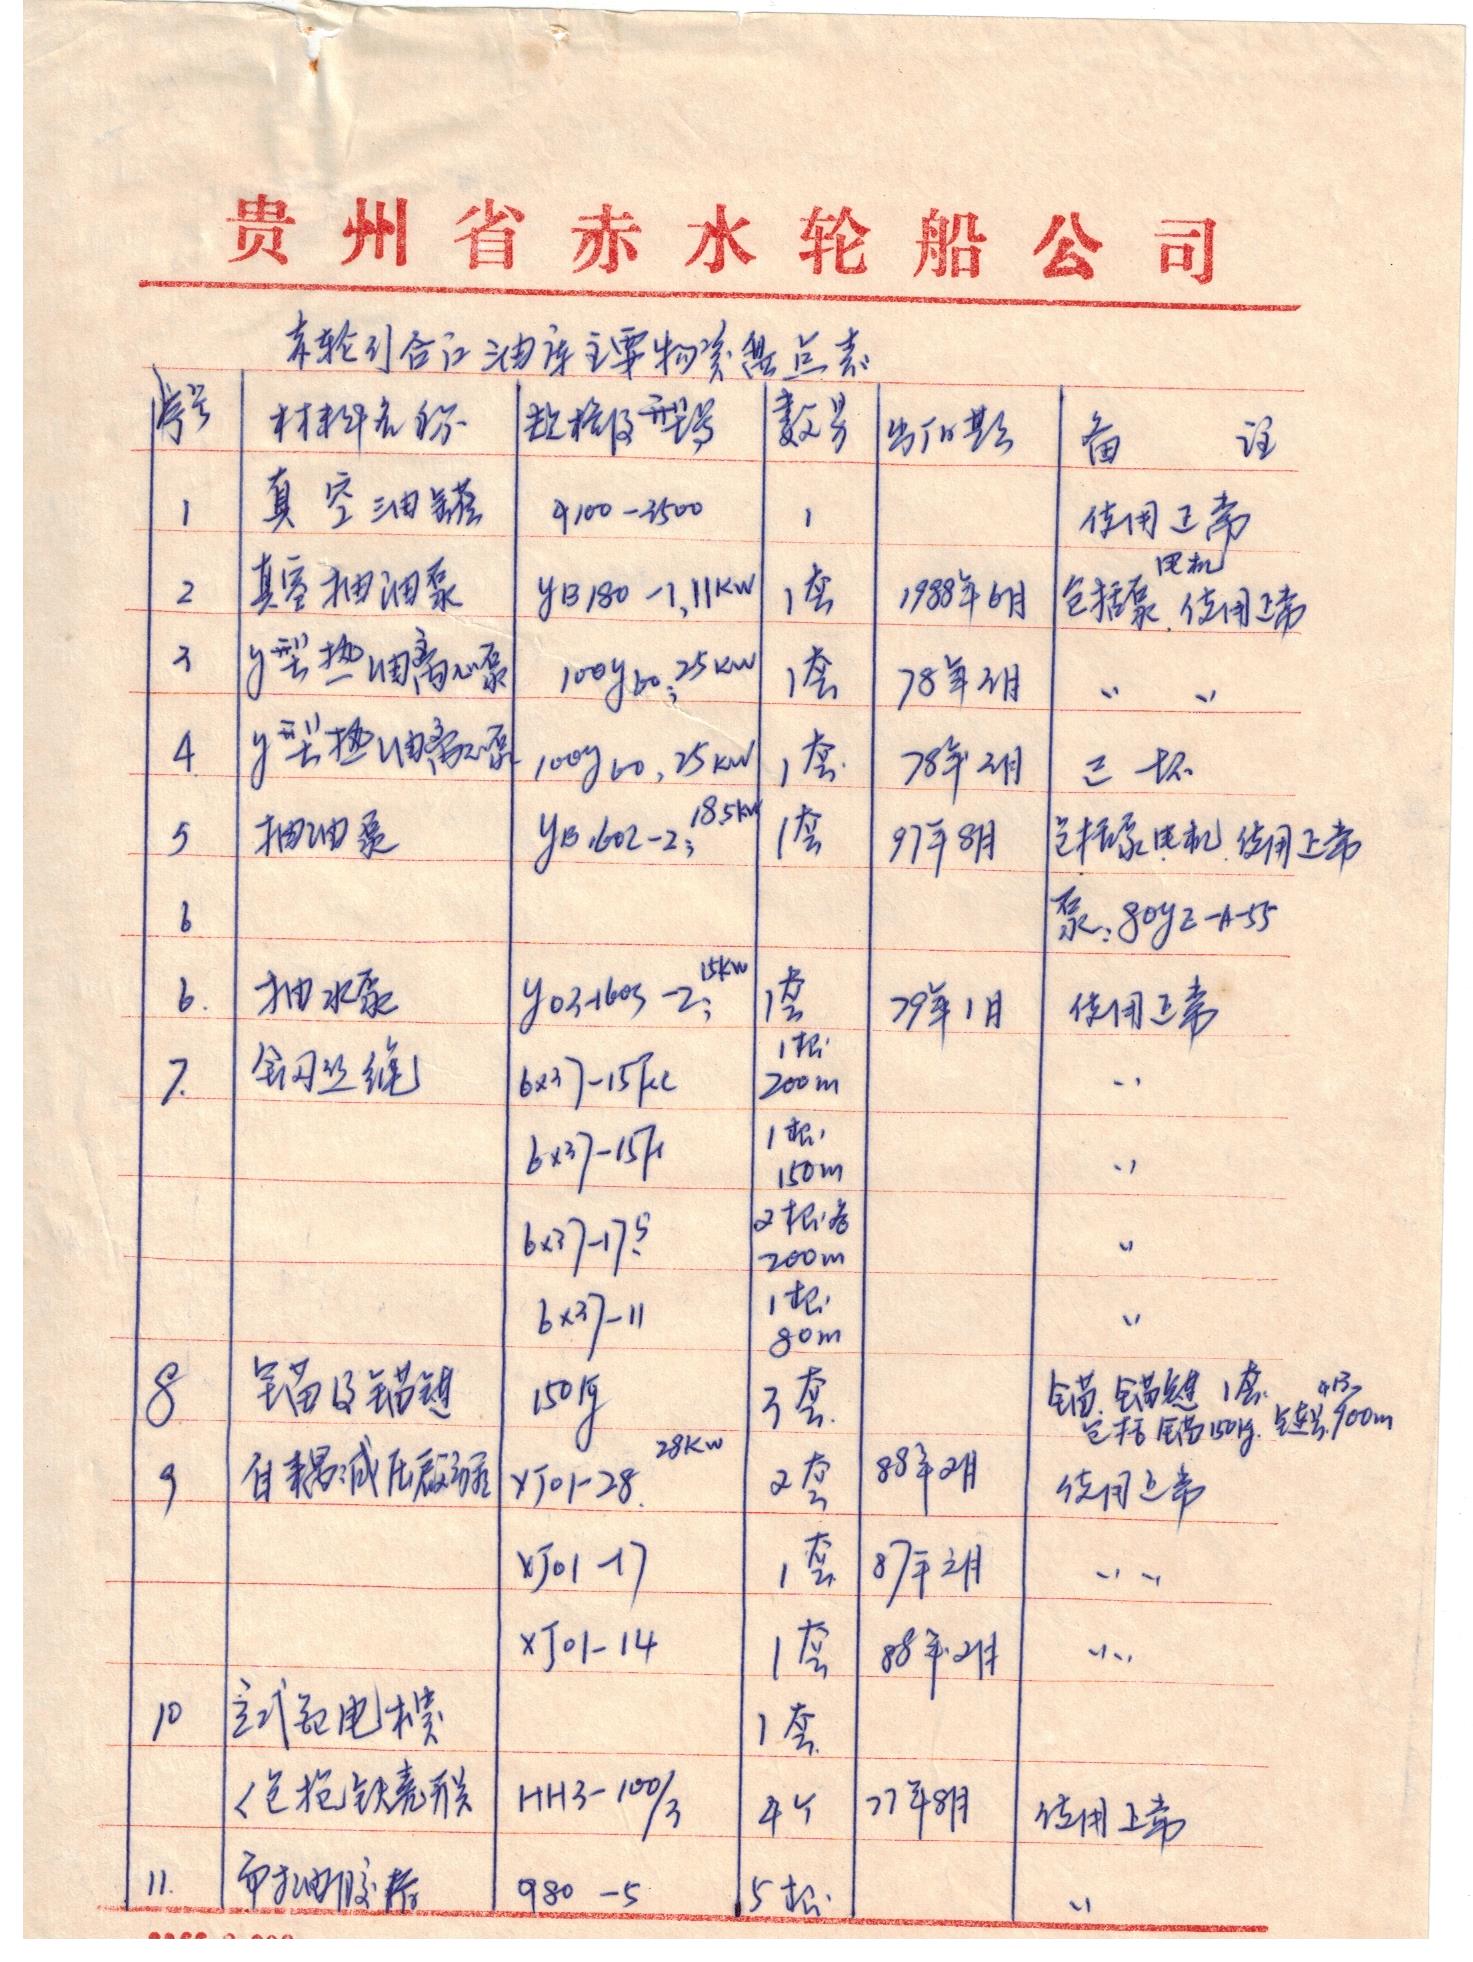 贵州省赤水轮船公司
赤轮司合江油库主要物资盘点表
序号 材料名称 规格及型号 数量 出厂日期 备 注
1 真空油罐 φ100-3500 1 使用正常
2 真空抽油泵 YB180-1,11KW 1套 1988年6月 包括泵、电机 使用正常
3 Y型热油离心泵 100Y60;25KW 1套 78年2月 〃 〃
4 Y型热油离心泵 100Y60,25KW 1套 78年2月 已坏
5 抽油泵 YB1602-2;18.5KW 1套 97年8月 包括泵电机 使用正常
6 泵:80YZ-A-55
6. 抽水泵 Y03-160S-2;15KW 1套 79年1月 使用正常
7. 钢丝绳 6×37-15 1根 200m 〃
6×37-15 1根 150m 〃
6×37-17.5 2根各 200m 〃
6×37-11 1根 80m 〃
8 锚及锚链 150kg 3套 锚、锚链1套
包括锚150kg.
9 自耦减压启动器 XJ01-28. 28KW 2套 88年2月 使用正常
XJ01-17 1套 87年2月 〃〃
XJ01-14 1套 88年2月 〃〃
10 立式配电柜 1套
(包括铁壳开关 HH3-100/3 4个 77年8月 使用正常
11. 帘抽油胶 φ80-5 5根 〃